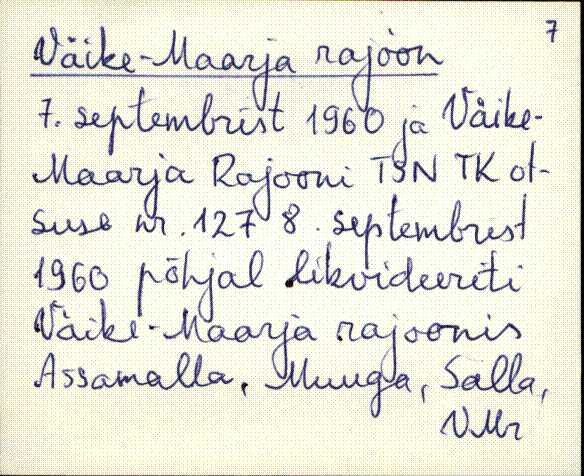 7
Väike-Maarja rajoon
7. septembrist 1960 ja Väike-
Maarja Rajooni TSN TK ot-
suse nr. 127 8. septembrist
1960 põhjal likvideeriti
Väike-Maarja rajoonis
Assamalla, Muuga, Salla,
VMr